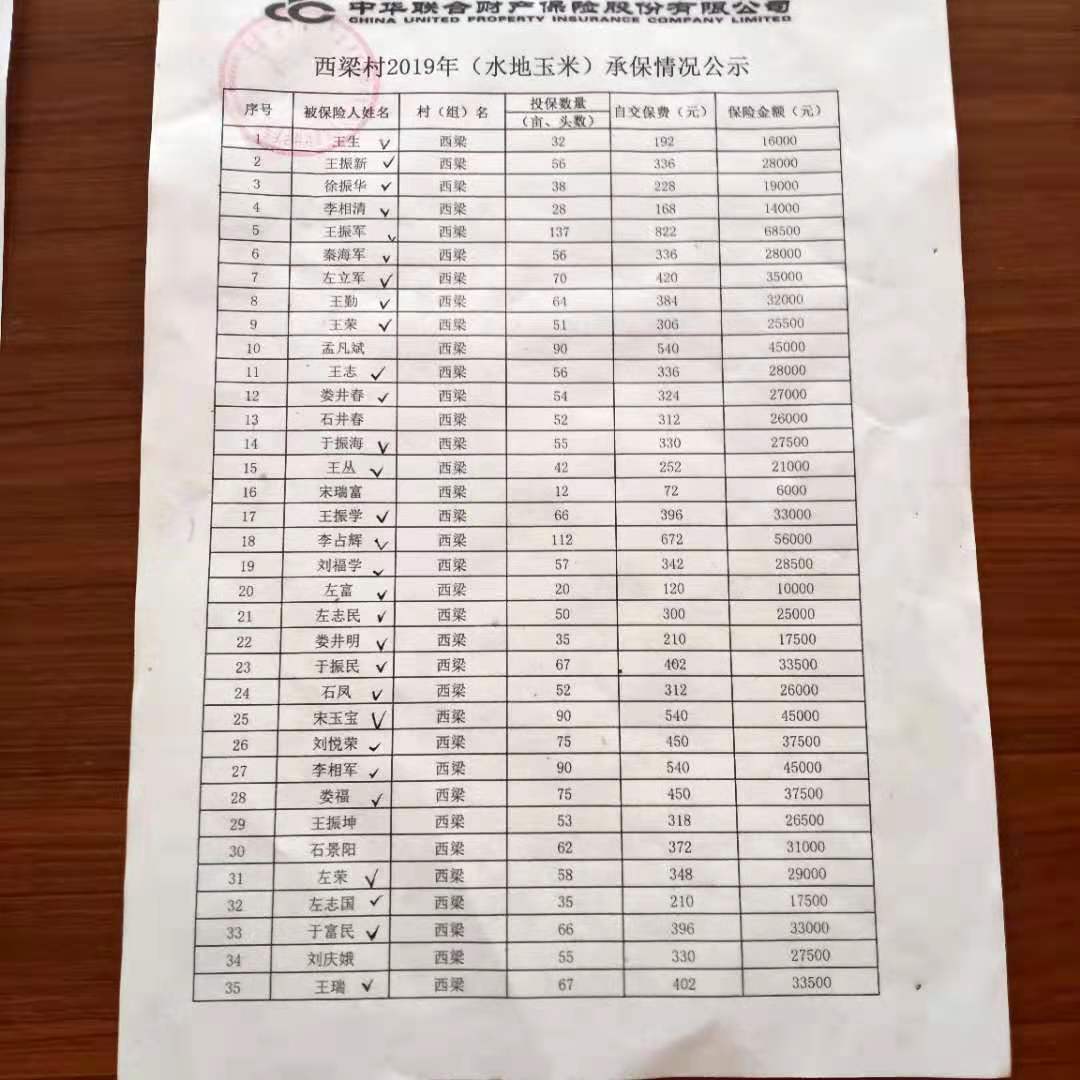 中华联合财产保险股份有限公司
CHINA UNITED PROPERTY INSURANCE COMPANY LIMITED
西梁村2019年（水地玉米）承保情况公示
序号 被保险人姓名 村（组）名 投保数量（亩、头数） 自交保费（元） 保险金额（元）
1 王生 ✓ 西梁 32 192 16000
2 王振新 ✓ 西梁 56 336 28000
3 徐振华 ✓ 西梁 38 228 19000
4 李相清 ✓ 西梁 28 168 14000
5 王振军 ✓ 西梁 137 822 68500
6 秦海军 ✓ 西梁 56 336 28000
7 左立军 ✓ 西梁 70 420 35000
8 王勤 ✓ 西梁 64 384 32000
9 王荣 ✓ 西梁 51 306 25500
10 孟凡斌 西梁 90 540 45000
11 王志 ✓ 西梁 56 336 28000
12 娄井春 ✓ 西梁 54 324 27000
13 石井春 西梁 52 312 26000
14 于振海 ✓ 西梁 55 330 27500
15 王丛 ✓ 西梁 42 252 21000
16 宋瑞富 西梁 12 72 6000
17 王振学 ✓ 西梁 66 396 33000
18 李占辉 ✓ 西梁 112 672 56000
19 刘福学 ✓ 西梁 57 342 28500
20 左富 ✓ 西梁 20 120 10000
21 左志民 ✓ 西梁 50 300 25000
22 娄井明 ✓ 西梁 35 210 17500
23 于振民 ✓ 西梁 67 402 33500
24 石凤 ✓ 西梁 52 312 26000
25 宋玉宝 ✓ 西梁 90 540 45000
26 刘悦荣 ✓ 西梁 75 450 37500
27 李相军 ✓ 西梁 90 540 45000
28 娄福 ✓ 西梁 75 450 37500
29 王振坤 西梁 53 318 26500
30 石景阳 西梁 62 372 31000
31 左荣 ✓ 西梁 58 348 29000
32 左志国 ✓ 西梁 35 210 17500
33 于富民 ✓ 西梁 66 396 33000
34 刘庆娥 西梁 55 330 27500
35 王瑞 ✓ 西梁 67 402 33500